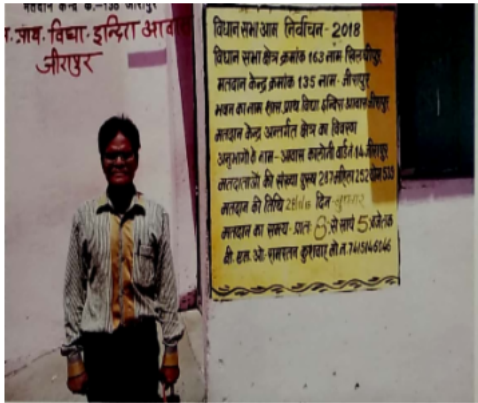 मतदान केन्द्र क्र.-135 जीरापुर
प्राथ. विद्या. इन्दिरा आवा
जीरापुर
विधान सभा आम निर्वाचन - 2018
विधान सभा क्षेत्र क्रमांक 163 नाम खिलचीपुर
मतदान केन्द्र क्रमांक 135 नाम - जीरापुर
भवन का नाम शास. प्राथ विद्या इन्दिरा आवास जीरापुर
मतदान केन्द्र अन्तर्गत क्षेत्र का विवरण
अनुभागो के नाम - आवास कालोनी वार्ड नं 14 जीरापुर
मतदाताओं की संख्या पुरुष 287 महिला 252 योग 539
मतदान की तिथि 28/11/18 दिन बुधवार
मतदान का समय - प्रातः 8 से सायं 5 बजे तक
बी. एल. ओ. रामरतन कुशवाह मो.नं. 7415146046